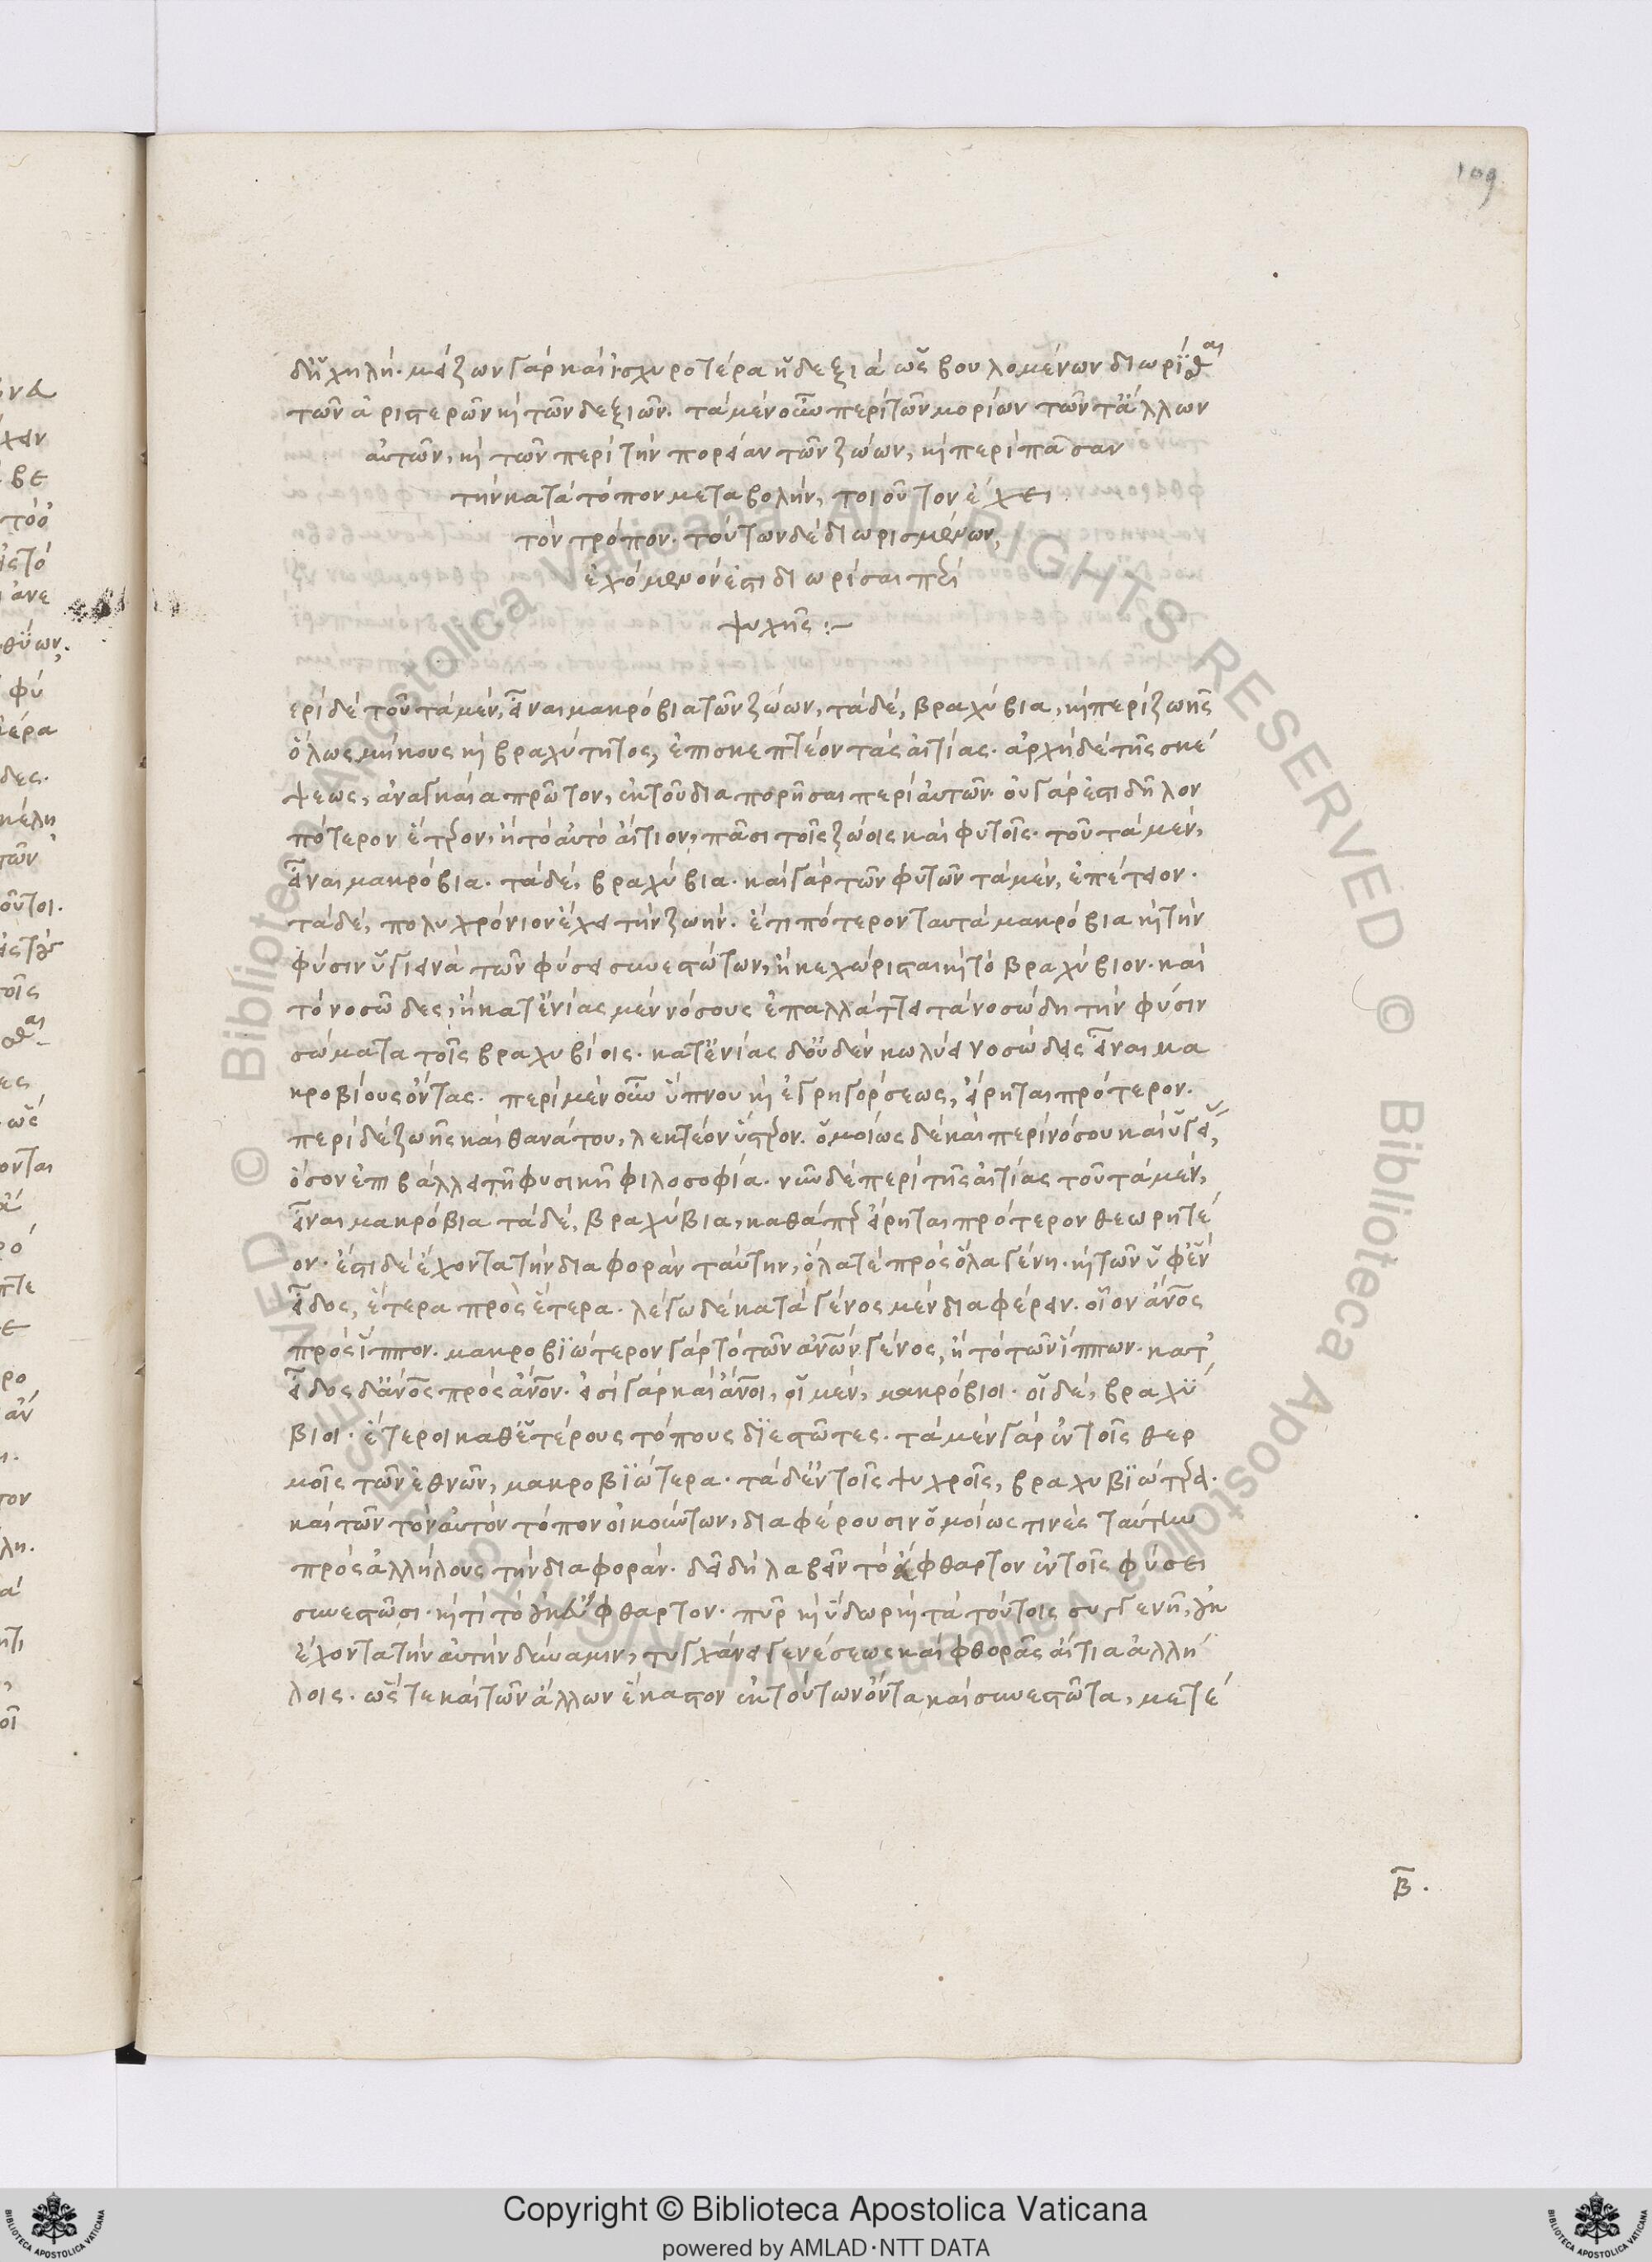 109
δὴ χηλή. μείζων γὰρ καὶ ἰσχυροτέρα ἡ δεξιὰ ὡς βουλομένων διωρίσθαι
τῶν ἀριστερῶν κ τῶν δεξιῶν. τὰ μὲν οὖν περὶ τῶν μορίων τῶν τἄλλων
αὐτῶν, κ τῶν περὶ τὴν πορείαν τῶν ζώων, κ περὶ πᾶσαν
τὴν κατὰ τόπον μεταβολὴν, τοιοῦτον ἔχει
τὸν τρόπον. τούτων δὲ διωρισμένων,
ἐχόμενον ἐστι διωρίσαι περὶ
ψυχῆς:—
ερὶ δὲ τοῦ τὰ μὲν, εἶναι μακρόβια τῶν ζώων, τὰ δὲ, βραχύβια, κ περὶ ζωῆς
ὅλως μήκους κ βραχύτητος, ἐπισκεπτέον τὰς αἰτίας. ἀρχὴ δὲ τῆς σκέ
ψεως, ἀναγκαία πρῶτον, ἐκ τοῦ διαπορῆσαι περὶ αὐτῶν. οὐ γάρ ἐστι δῆλον
πότερον ἕτερον, ἢ τὸ αὐτὸ αἴτιον, πᾶσι τοῖς ζώοις καὶ φυτοῖς. τοῦ τὰ μὲν,
εἶναι μακρόβια. τὰ δὲ, βραχύβια. καὶ γὰρ τῶν φυτῶν τὰ μὲν, ἐπέτειον.
τὰ δὲ, πολυχρόνιον ἔχει τὴν ζωήν. ἔτι πότερον ταυτὰ μακρόβια κ τὴν
φύσιν ὑγιεινὰ τῶν φύσει συνεστώτων, ἢ κεχώρισται κ τὸ βραχύβιον. καὶ
τὸ νοσῶδες, ἢ κατ' ἐνίας μὲν νόσους ἐπαλλάττει τὰ νοσώδη τὴν φύσιν
σώματα τοῖς βραχυβίοις. κατ' ἐνίας δ' οὐδὲν κωλύει νοσώδεις εἶναι μα
κροβίους ὄντας. περὶ μὲν οὖν ὕπνου κ ἐγρηγόρσεως, εἴρηται πρότερον.
περὶ δὲ ζωῆς καὶ θανάτου, λεκτέον ὕστερον. ὁμοίως δὲ καὶ περὶ νόσου καὶ ὑγείας,
ὅσον ἐπιβάλλει τῇ φυσικῇ φιλοσοφίᾳ. νῦν δὲ περὶ τῆς αἰτίας τοῦ τὰ μὲν,
εἶναι μακρόβια τὰ δὲ, βραχύβια, καθάπερ εἴρηται πρότερον θεωρητέ
ον. ἔστι δὲ ἔχοντα τὴν διαφορὰν ταύτην, ὅλα τὲ πρὸς ὅλα γένη. κ τῶν ὑφ' ἓν
εἶδος, ἕτερα πρὸς ἕτερα. λέγω δὲ κατὰ γένος μὲν διαφέρειν. οἷον ἄνος
πρὸς ἵππον. μακροβιώτερον γὰρ τὸ τῶν ἀνῶν γένος, ἢ τὸ τῶν ἵππων. κατ'
εἶδος δ' ἄνος πρὸς ἄνον. εἰσὶ γὰρ καὶ ἄνοι, οἱ μὲν, μακρόβιοι. οἱ δὲ, βραχύ
βιοι. ἕτεροι καθ' ἑτέρους τόπους διεστῶτες. τὰ μὲν γὰρ ἐν τοῖς θερ
μοῖς τῶν ἐθνῶν, μακροβιώτερα. τὰ δ' ἐν τοῖς ψυχροῖς, βραχυβιώτερα.
καὶ τῶν τὸν αὐτὸν τόπον οἰκούντων, διαφέρουσιν ὁμοίως τινὲς ταύτην
πρὸς ἀλλήλους τὴν διαφοράν. δεῖ δὴ λαβεῖν τὸ ἄφθαρτον ἐν τοῖς φύσει
συνεστῶσι. κ τί τὸ οὐκ εὔφθαρτον. πῦρ κ ὕδωρ κ τὰ τούτοις συγγενῆ, οὐκ
ἔχοντα τὴν αὐτὴν δύναμιν, τυγχάνει γενέσεως καὶ φθορᾶς αἴτια ἀλλή
λοις. ὥστε καὶ τῶν ἄλλων ἕκαστον ἐκ τούτων ὄντα καὶ συνεστῶτα, μετέ
β.
Copyright © Biblioteca Apostolica Vaticana
powered by AMLAD·NTT DATA